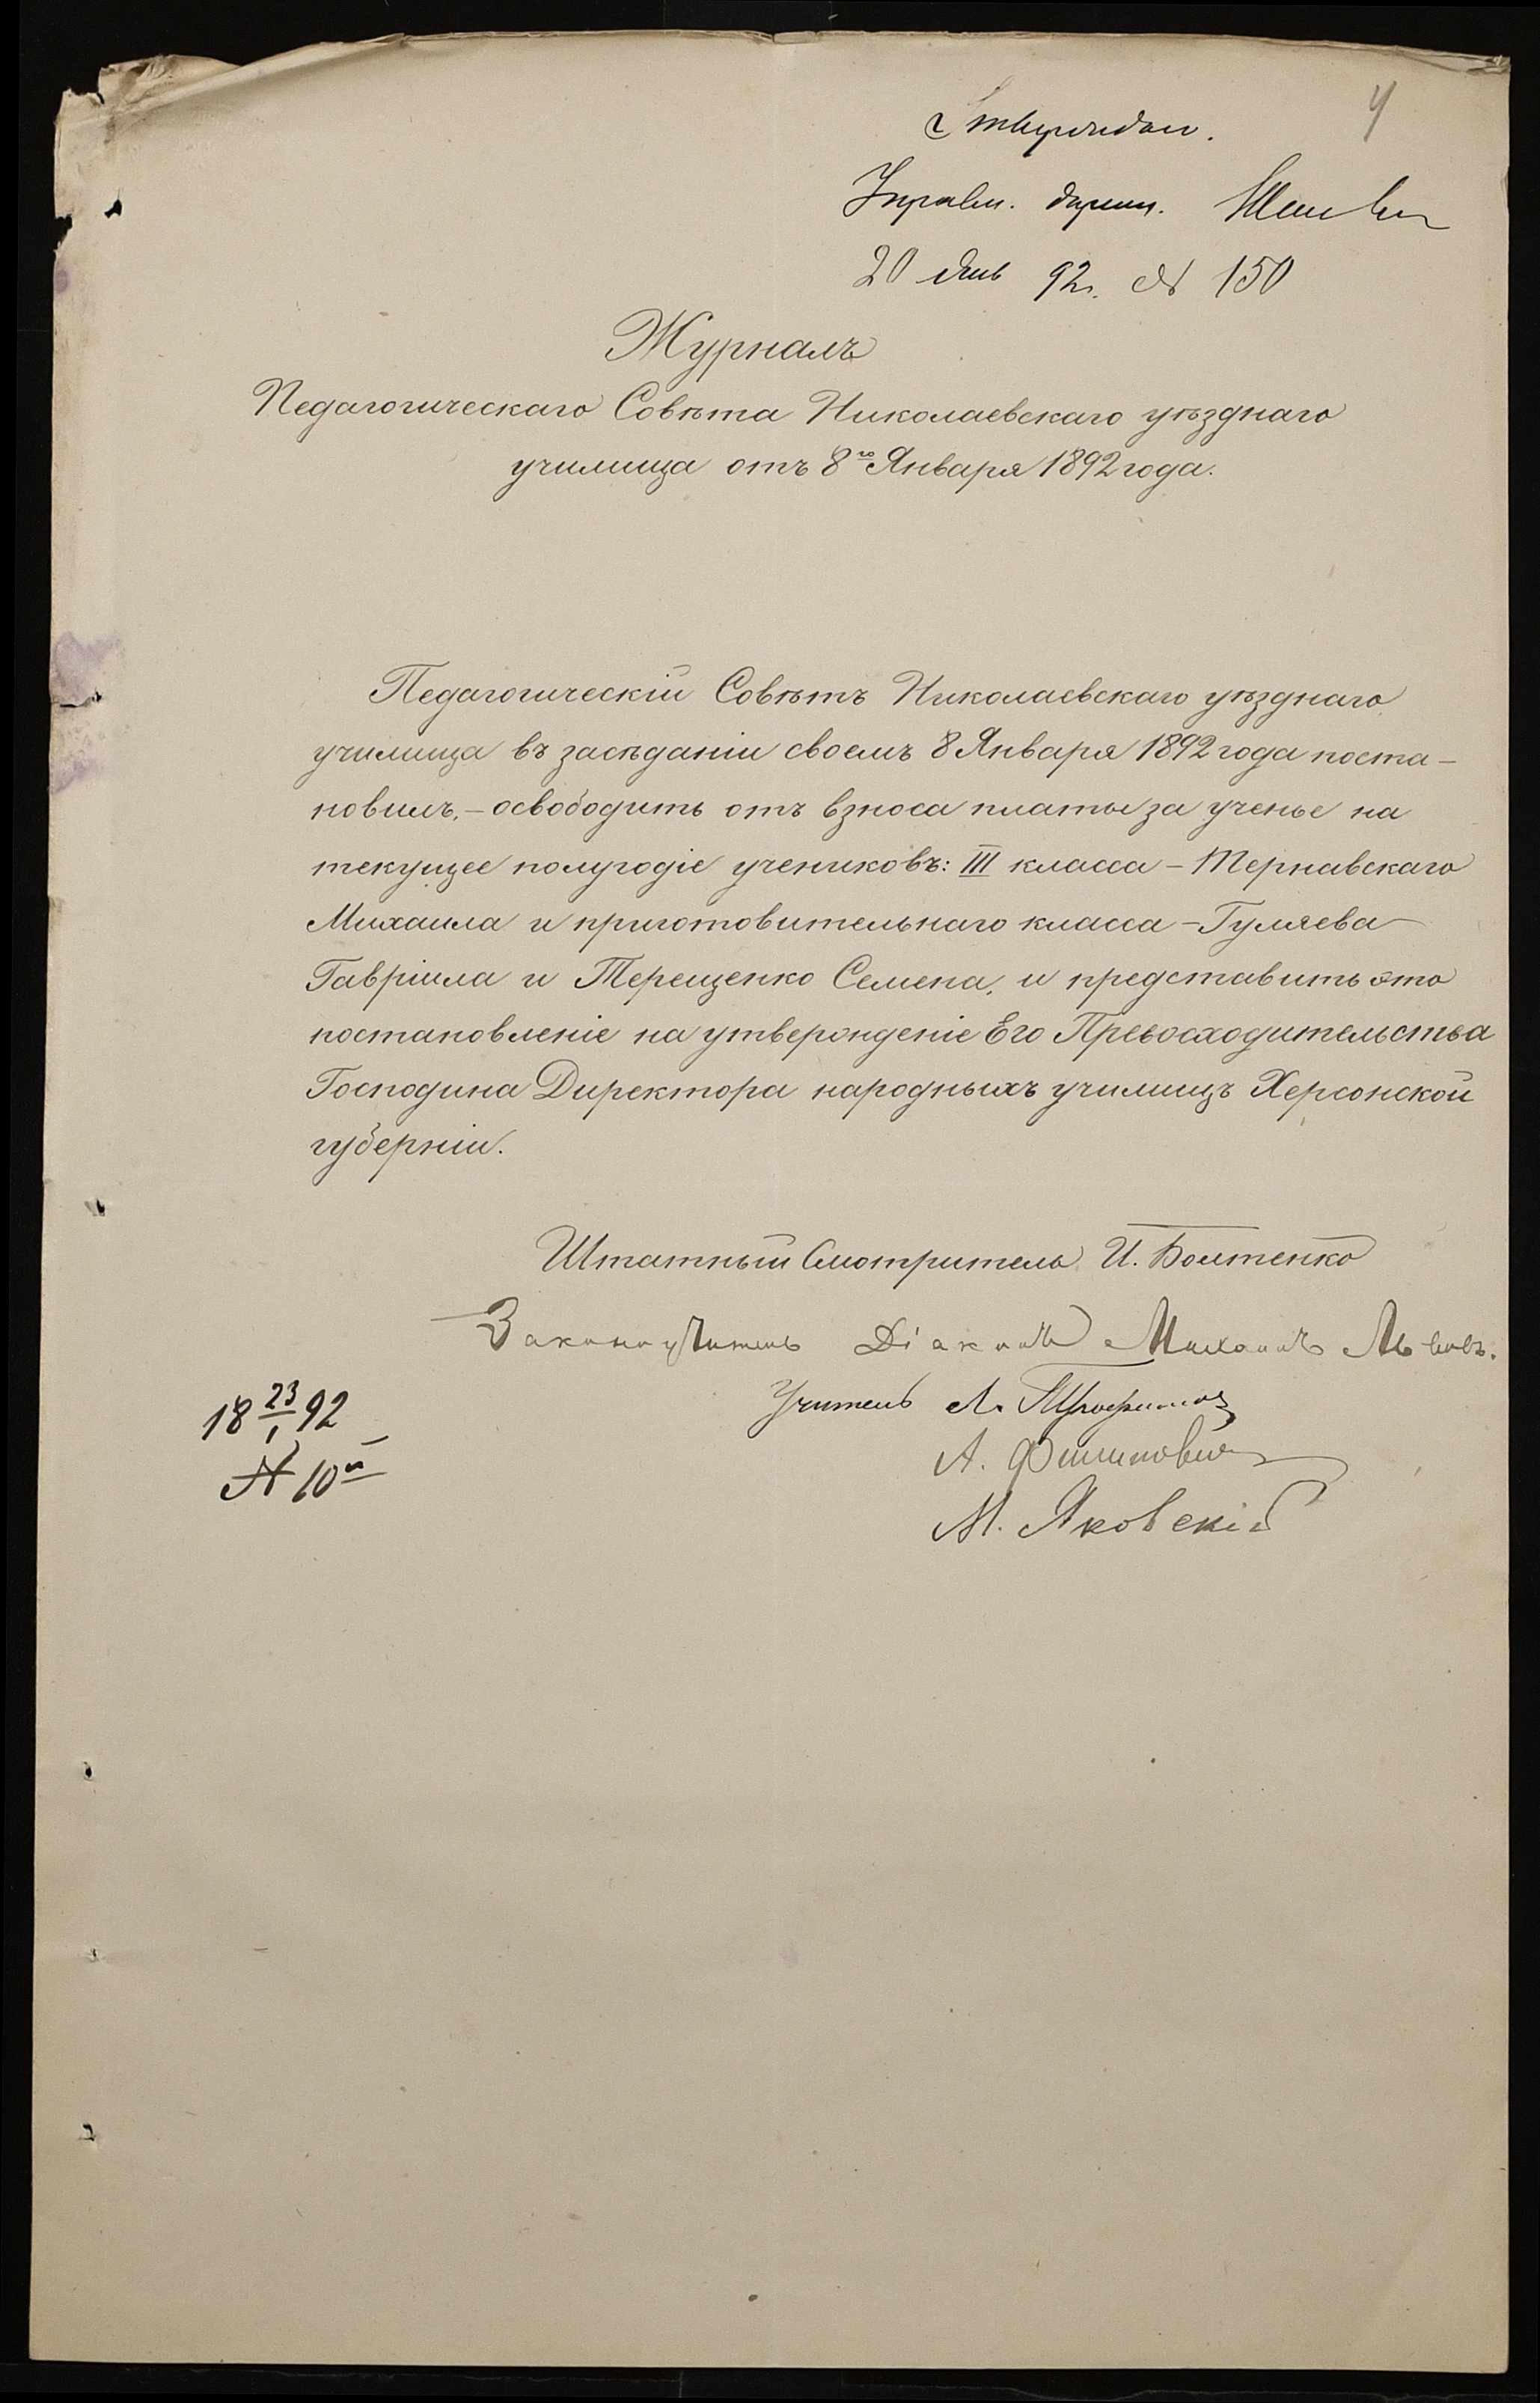 4
Утверждаю.
Управл. дирекц.
20 Янв 92. № 150
Журналъ
Педагогическаго Совѣта Николаевскаго уѣзднаго
училища отъ 8го Января 1892 года.
Педагогическій Совѣтъ Николаевскаго уѣзднаго
училища въ засѣданіи своемъ 8 Января 1892 года поста-
новилъ, - освободить отъ взноса платы за ученье на
текущее полугодіе учениковъ: III класса - Тернавскаго
Михаила и приготовительнаго класса - Гуляева
Гавріила и Терещенко Семена, и представить это
постановленіе на утвержденіе Его Превосходительства
Господина Директора народныхъ училищъ Херсонской
губерніи.
Штатный Смотритель И. Болтенко
Законоучитель Діаконъ Михаилъ Львовъ.
Учитель А. Трофимов
А. Филипович
М. Яковскій
18 23/1 92
№ 10й